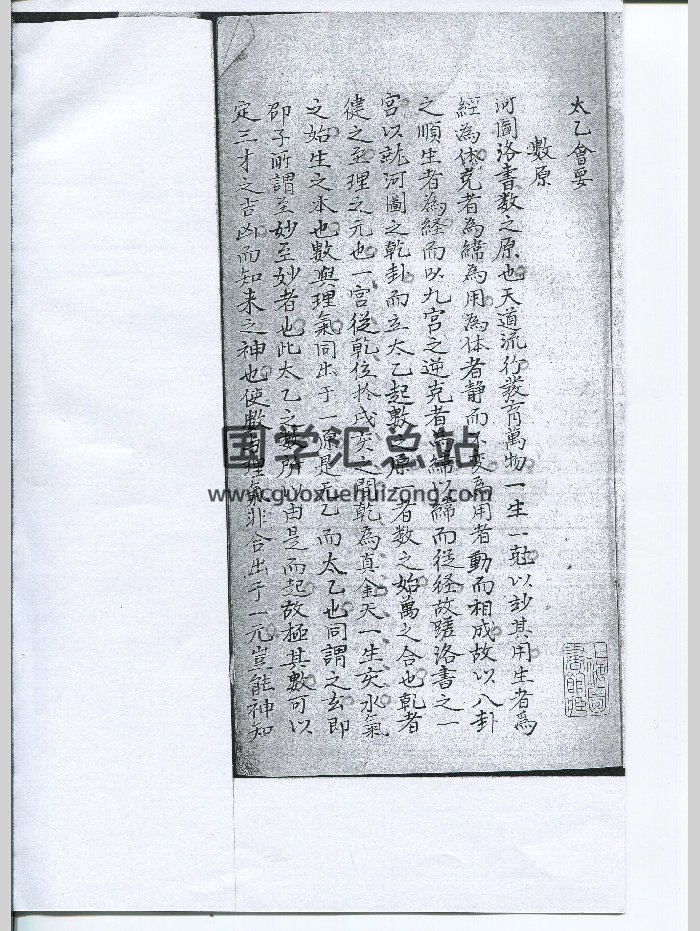 太乙會要
數原
河圖洛書數之原也天道流行發育萬物一生一尅以妙其用生者為
經為体克者為緯為用為体者静而不变為用者動而相成故以八卦
之順生者為経而以九宮之逆克者為緯以緯而従径故蹉洛書之一
宮以就河圖之乾卦而立太乙起數之原一者数之始萬之合也乾者
健之至理之元也一宮從乾位扵戌亥之間乾為真金天一生亥水氣
之始生之本也數與理氣同出于一原是天乙而太乙也同謂之玄即
邵子所謂至妙至妙者也此太乙之数所以由是而起故極其數可以
定三才之吉凶而知来之神也使數理氣非合出于一元豈能神知
国学汇总站
www.guoxuehuizong.com